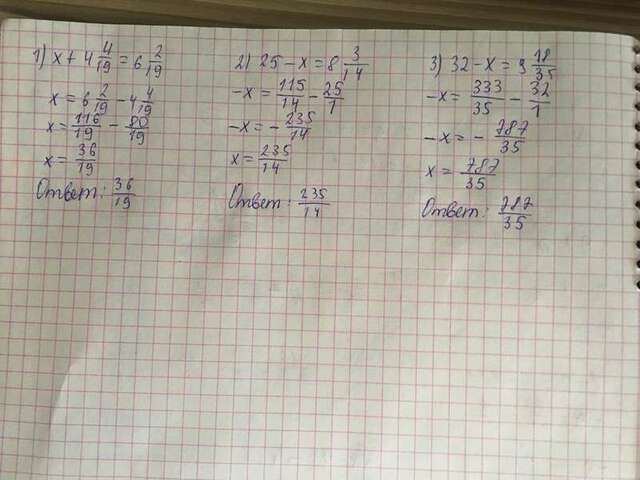 1) x + 4 4/19 = 6 2/19
x = 6 2/19 - 4 4/19
x = 116/19 - 80/19
x = 36/19
Ответ: 36/19
2) 25 - x = 8 3/14
-x = 115/14 - 25/1
-x = - 235/14
x = 235/14
Ответ: 235/14
3) 32 - x = 9 18/35
-x = 333/35 - 32/1
-x = - 787/35
x = 787/35
Ответ: 787/35